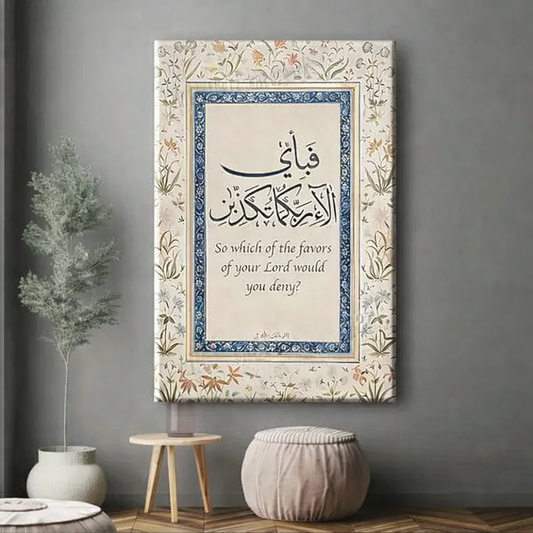 فَبِأَيِّ
آلَاءِ رَبِّكُمَا تُكَذِّبَانِ
So which of the favors
of your Lord would
you deny?